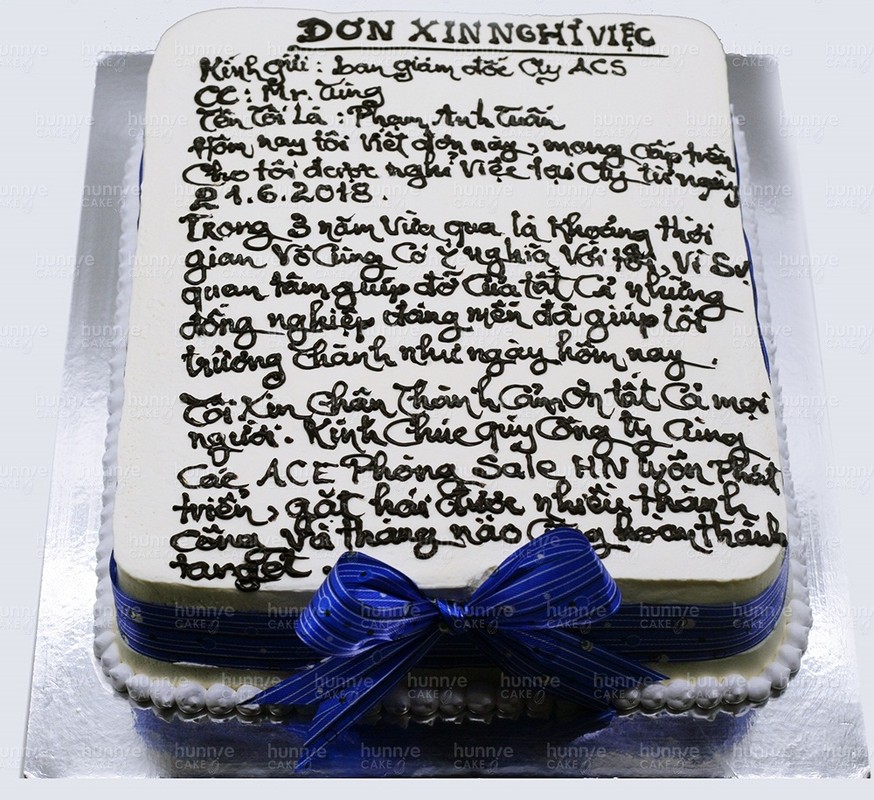 ĐƠN XIN NGHỈ VIỆC
Kính gửi : ban giám đốc Cty ACS
CC : Mr. Tùng
Tên Tôi Là : Phạm Anh Tuấn
Hôm nay tôi viết đơn này, mong cấp trên
Cho tôi được nghỉ việc tại Cty từ ngày
21.6.2018.
Trong 3 năm vừa qua là khoảng thời
gian Vô Cùng Có ý nghĩa Với tôi, Vì Sự
quan tâm giúp đỡ Của tất Cả những
đồng nghiệp đáng mến đã giúp tôi
trưởng thành như ngày hôm nay.
Tôi Xin Chân Thành Cảm Ơn tất Cả mọi
người. Kính Chúc quý Công ty Cùng
Các ACE Phòng Sale HN luôn Phát
triển, gặt hái được nhiều thành
Công và tháng nào Cũng hoàn thành
target.
hunnie
CAKE